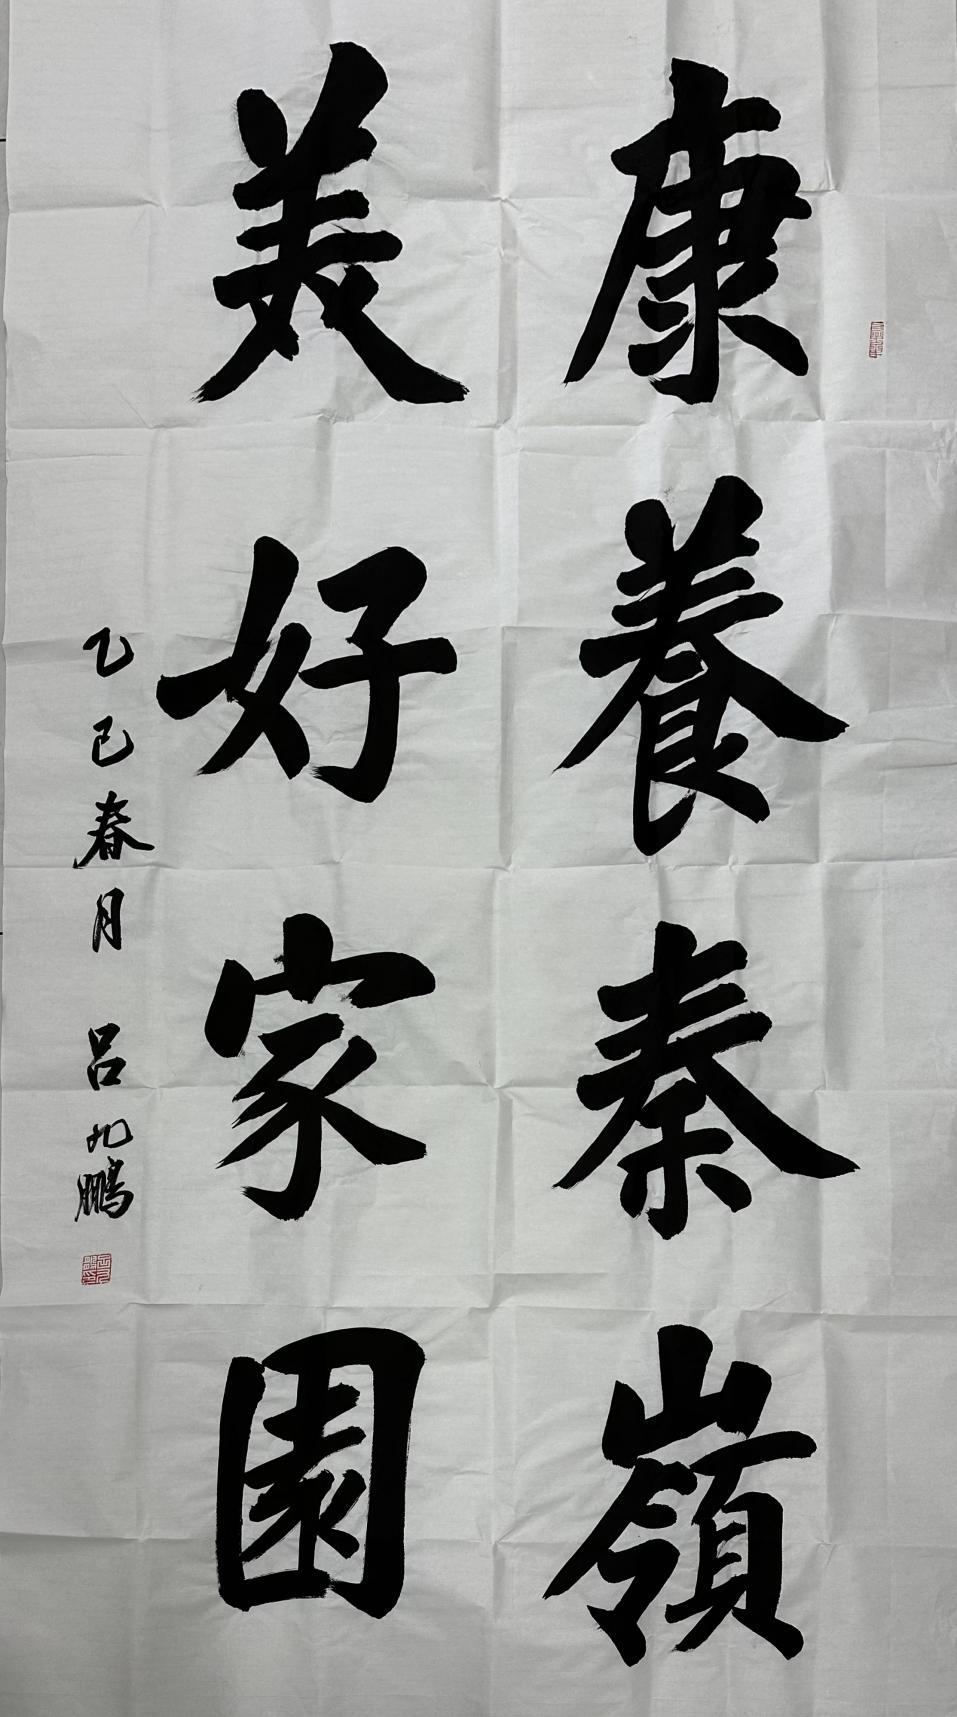 康養秦嶺
美好家園
乙巳春月 呂九鵬